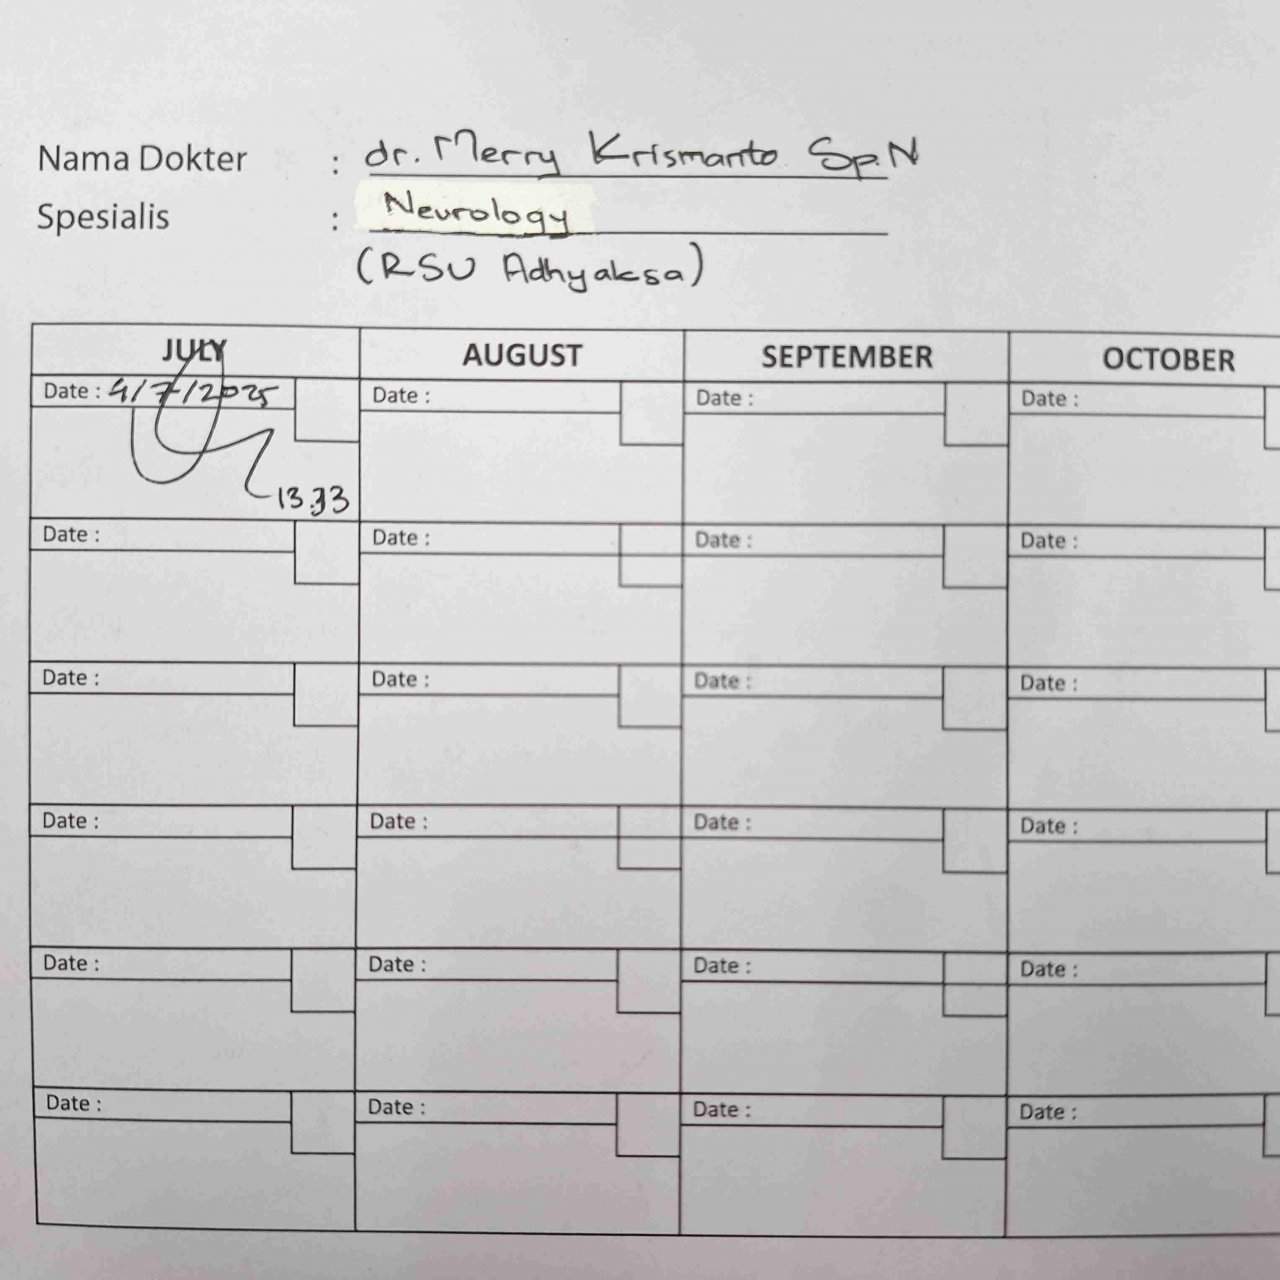 Nama Dokter : dr. Merry Krismanto Sp.N
Spesialis : Neurology
(RSU Adhyaksa)
JULY AUGUST SEPTEMBER OCTOBER
Date : 4/7/2025 Date : Date : Date :
13.33
Date : Date : Date : Date :
Date : Date : Date : Date :
Date : Date : Date : Date :
Date : Date : Date : Date :
Date : Date : Date : Date :